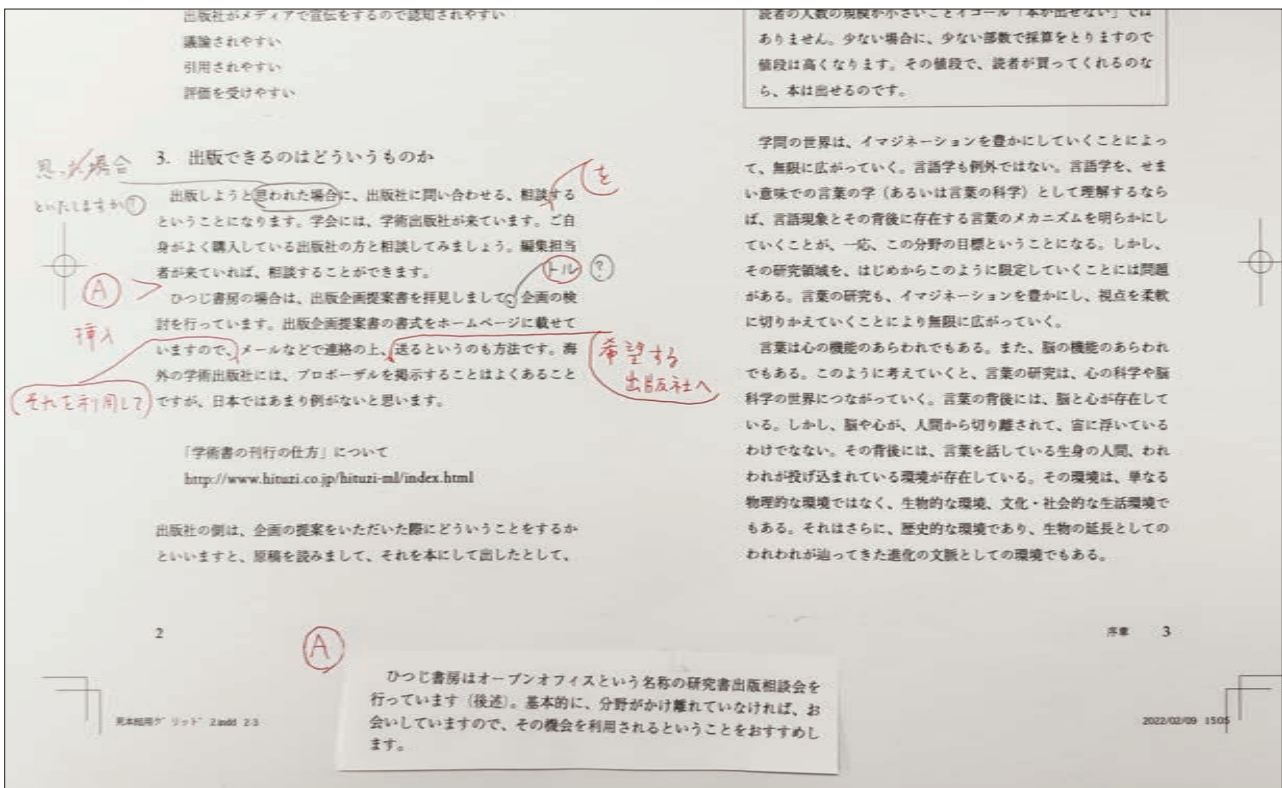 出版社がメディアで宣伝をするので認知されやすい
議論されやすい
引用されやすい
評価を受けやすい
3. 出版できるのはどういうものか
思った場合
といたしますか?
出版しようと思われた場合に、出版社に問い合わせる、相談する
を
ということになります。学会には、学術出版社が来ています。ご自
身がよく購入している出版社の方と相談してみましょう。編集担当
者が来ていれば、相談することができます。
トル ?
A
挿入
ひつじ書房の場合は、出版企画提案書を拝見しまして、企画の検
討を行っています。出版企画提案書の書式をホームページに載せて
いますので、メールなどで連絡の上、送るというのも方法です。海
希望する
出版社へ
外の学術出版社には、プロポーザルを掲示することはよくあること
それを利用して
ですが、日本ではあまり例がないと思います。
「学術書の刊行の仕方」について
http://www.hituzi.co.jp/hituzi-ml/index.html
出版社の側は、企画の提案をいただいた際にどういうことをするか
といいますと、原稿を読みまして、それを本にして出したとして、
2
読者の人数の規模が小さいことイコール「本が出せない」では
ありません。少ない場合に、少ない部数で採算をとりますので
値段は高くなります。その値段で、読者が買ってくれるのな
ら、本は出せるのです。
学問の世界は、イマジネーションを豊かにしていくことによっ
て、無限に広がっていく。言語学も例外ではない。言語学を、せま
い意味での言葉の学（あるいは言葉の科学）として理解するなら
ば、言語現象とその背後に存在する言葉のメカニズムを明らかにし
ていくことが、一応、この分野の目標ということになる。しかし、
その研究領域を、はじめからこのように限定していくことには問題
がある。言葉の研究も、イマジネーションを豊かにし、視点を柔軟
に切りかえていくことにより無限に広がっていく。
言葉は心の機能のあらわれでもある。また、脳の機能のあらわれ
でもある。このように考えていくと、言葉の研究は、心の科学や脳
科学の世界につながっていく。言葉の背後には、脳と心が存在して
いる。しかし、脳や心が、人間から切り離されて、宙に浮いている
わけでない。その背後には、言葉を話している生身の人間、われ
われが投げ込まれている環境が存在している。その環境は、単なる
物理的な環境ではなく、生物的な環境、文化・社会的な生活環境で
もある。それはさらに、歴史的な環境であり、生物の延長としての
われわれが辿ってきた進化の文脈としての環境でもある。
序章 3
A
ひつじ書房はオープンオフィスという名称の研究書出版相談会を
行っています（後述）。基本的に、分野がかけ離れていなければ、お
会いしていますので、その機会を利用されるということをおすすめし
ます。
見本組用グリッド 2.indd 2-3
2022/02/09 15:05